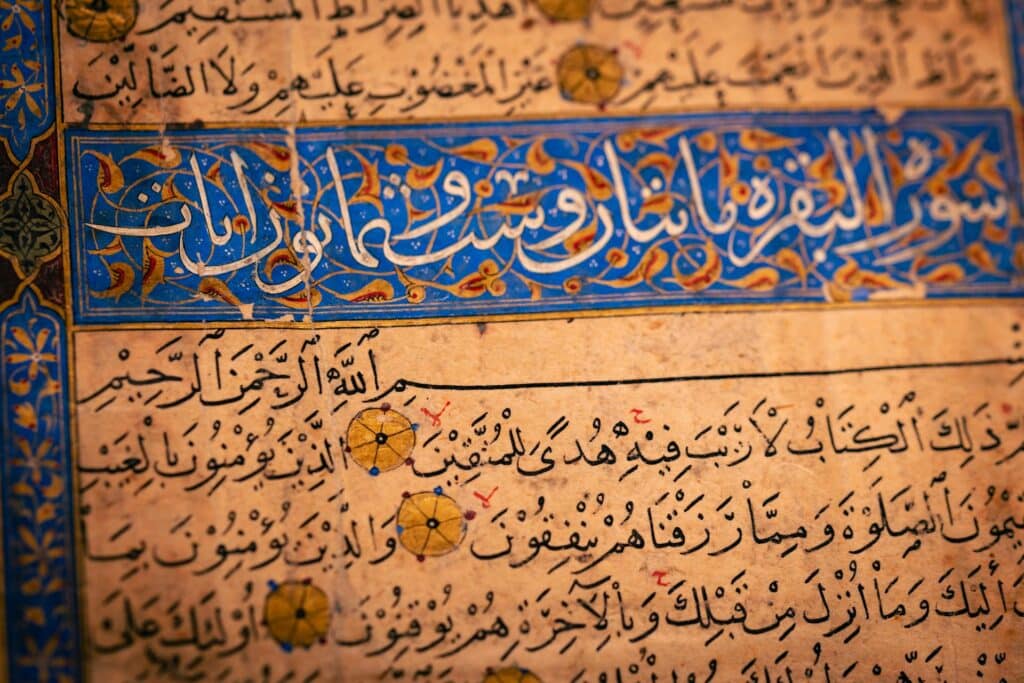 اِهْدِنَا الصِّرَاطَ الْمُسْتَقِيْمَ
صِرَاطَ الَّذِيْنَ اَنْعَمْتَ عَلَيْهِمْ غَيْرِ الْمَغْضُوْبِ عَلَيْهِمْ وَلَا الضَّالِّيْنَ
سورة البقرة مائتان وست وثمانون ايات
بِسْمِ اللّٰهِ الرَّحْمٰنِ الرَّحِيْمِ
ذٰلِكَ الْكِتَابُ لَا رَيْبَ فِيْهِ هُدًى لِلْمُتَّقِيْنَ الَّذِيْنَ يُؤْمِنُوْنَ بِالْغَيْبِ
يْمُوْنَ الصَّلٰوةَ وَمِمَّا رَزَقْنَاهُمْ يُنْفِقُوْنَ وَالَّذِيْنَ يُؤْمِنُوْنَ بِمَا
اِلَيْكَ وَمَا اُنْزِلَ مِنْ قَبْلِكَ وَبِالْاٰخِرَةِ هُمْ يُوْقِنُوْنَ اُولٰئِكَ عَلٰى